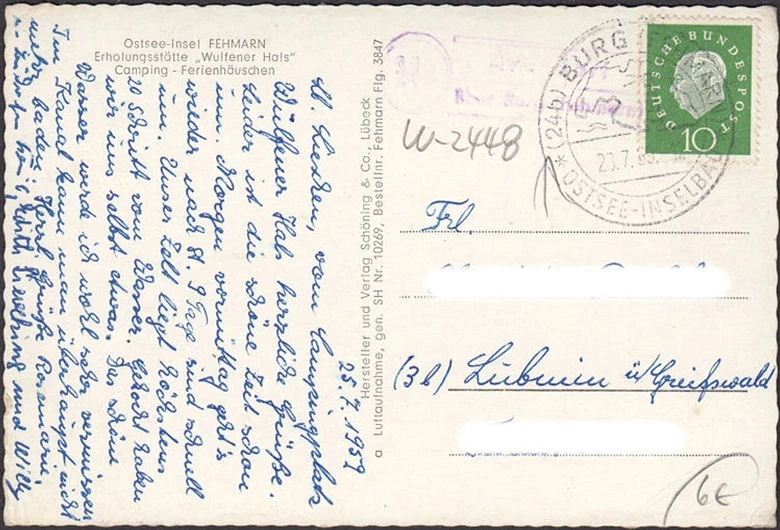 Ostsee-Insel FEHMARN
Erholungsstätte „Wulfener Hals"
Camping - Ferienhäuschen
25.7.1959
Lb. vom Campingplatz
Wulfener Hals herzliche Grüße.
Leider ist die schöne Zeit schon
um. Morgen vormittag geht's
wieder nach H. 9 Tage sind schnell
um. Unser Zelt liegt höchstens
20 Schritt vom Wasser. Gekocht haben
wir uns selbst etwas. Das schöne
Wasser werde ich wohl sehr vermissen
Im Kanal kann man überhaupt nicht
mehr baden. Herzl. Grüße Rosemarie,
Edith und Willy
Hersteller und Verlag Schöning & Co., Lübeck
a Luftaufnahme, gen. SH Nr. 10269, Bestellnr. Fehmarn Flg. 3847
W-2448
(24b) BURG
OSTSEE-INSELBAD
DEUTSCHE BUNDESPOST
10
Frl.
(3b) Lubmin ü/Greifswald
6€